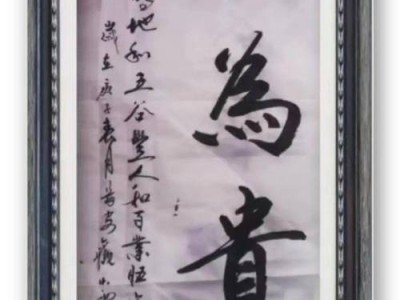 為貴
地和五谷豐人和百業旺
歲在庚子春月